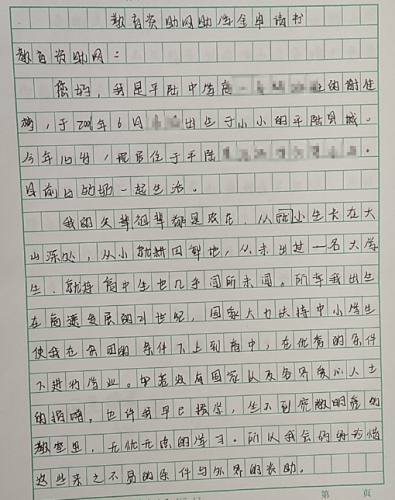 教育资助网助学金申请书
教育资助网：
您好，我是平陆中学高一的谢佳
，于200年6月出生于小小的平陆县城。
今年16岁，现居住于平陆。
目前与奶奶一起生活。
我的父辈祖辈都是农民，从小生长在大
山深处，从小就耕田种地，从未出过一名大学
生，就连高中生也几乎闻所未闻。所幸我出生
在高速发展的21世纪，国家大力扶持中小学生
使我在贫困的条件下上到高中，在优秀的条件
下进行学业。如若没有国家以及各界爱心人士
的捐赠，也许我早已辍学，坐不到宽敞明亮的
教室里，无忧无虑的学习。所以我会好好珍惜
这些来之不易的条件与外界的资助。
第 页